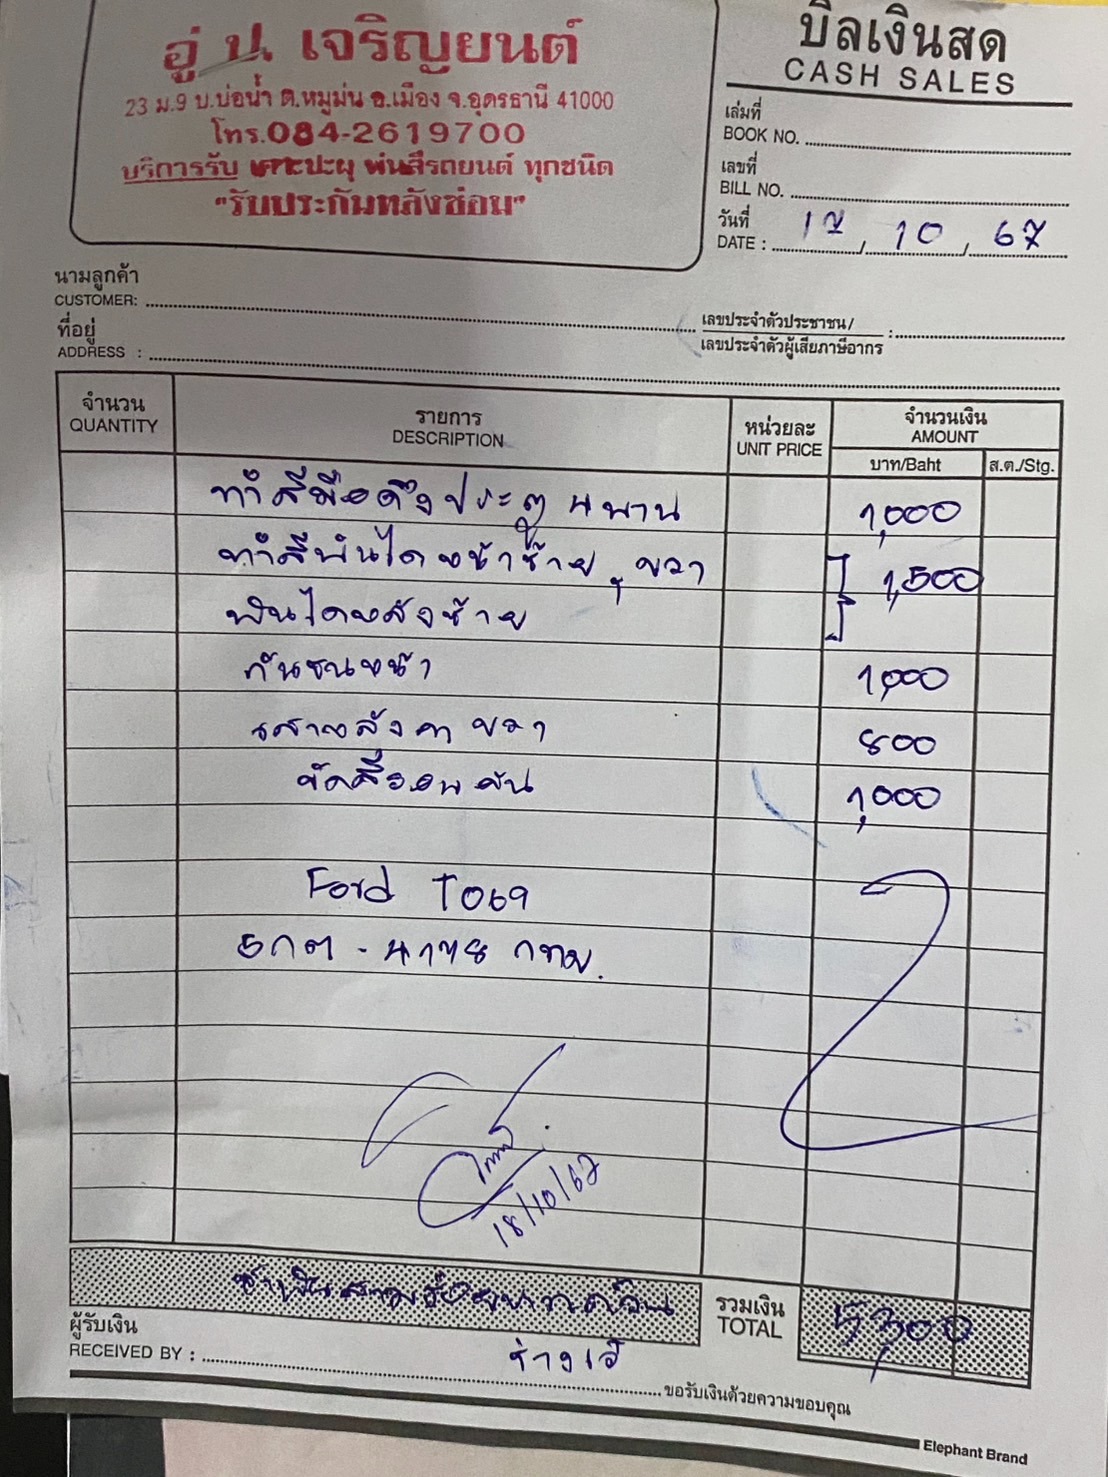 อู่ ป. เจริญยนต์
23 ม.9 บ.บ่อน้ำ ต.หมูม่น อ.เมือง จ.อุดรธานี 41000
โทร.084-2619700
บริการรับ เคาะปะผุ พ่นสีรถยนต์ ทุกชนิด
"รับประกันหลังซ่อม"
บิลเงินสด
CASH SALES
เล่มที่
BOOK NO.
เลขที่
BILL NO.
วันที่
DATE : 17 / 10 / 67
นามลูกค้า
CUSTOMER:
ที่อยู่
ADDRESS :
เลขประจำตัวประชาชน/
เลขประจำตัวผู้เสียภาษีอากร :
จำนวน
QUANTITY
รายการ
DESCRIPTION
หน่วยละ
UNIT PRICE
จำนวนเงิน
AMOUNT
บาท/Baht ส.ต./Stg.
ทำสีมือดึงประตู บาน 1,000
ทำสีบันได หน้าซ้าย, ขวา 1,500
บันไดหลังซ้าย
กันชนหน้า 1,000
หลังคา ขวา 800
ขัดสีรอบคัน 1,000
Ford T069
กทม.
18/10/67
ห้าพันสามร้อยบาทถ้วน
รวมเงิน
TOTAL 5,300
ผู้รับเงิน
RECEIVED BY : ช่างเอ๋
ขอรับเงินด้วยความขอบคุณ
Elephant Brand